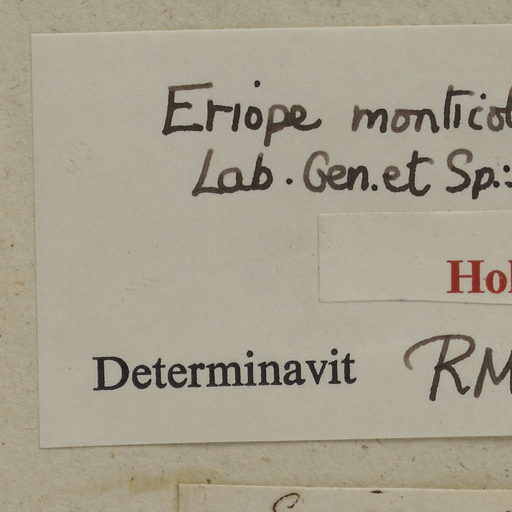 Eriope monticol
Lab. Gen. et Sp.:
Hol
Determinavit RM